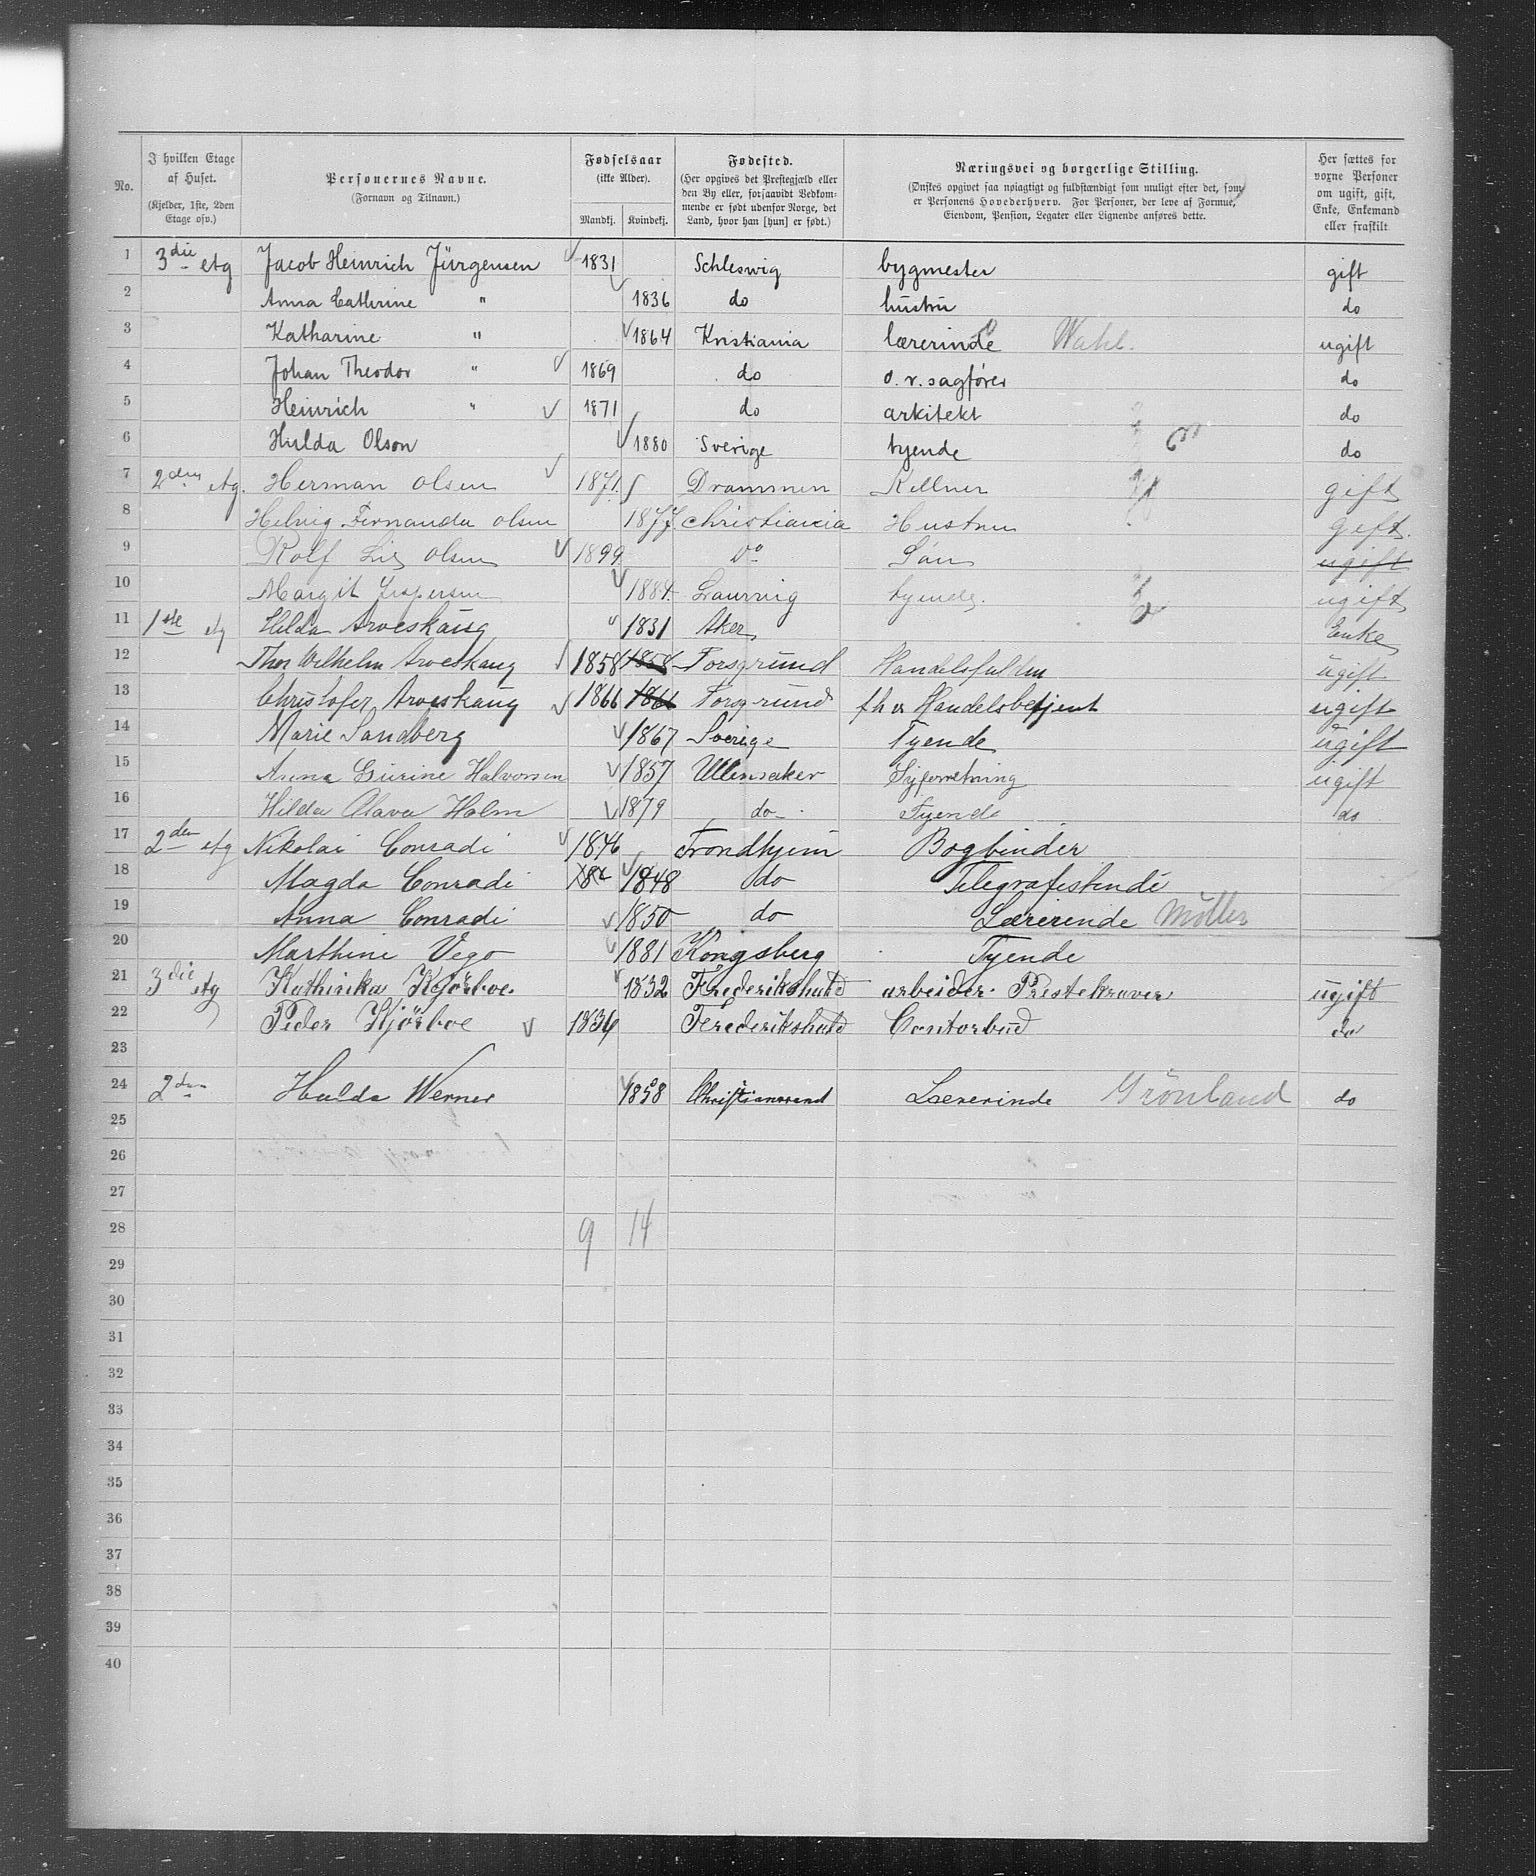 No.
I hvilken Etage af Huset.
(Kjelder, 1ste, 2den Etage osv.)
Personernes Navne.
(Fornavn og Tilnavn.)
Fødselsaar
(ikke Alder).
Mandkj. Kvindekj.
Fødested.
(Her opgives det Prestegjæld eller den By eller, forsaavidt Vedkommende er født udenfor Norge, det Land, hvor han [hun] er født.)
Næringsvei og borgerlige Stilling.
(Ønskes opgivet saa nøiagtigt og fuldstændigt som muligt efter det, som er Personens Hovederhverv. For Personer, der leve af Formue, Eiendom, Pension, Legater eller Lignende anføres dette.
Her sættes for voxne Personer om ugift, gift, Enke, Enkemand eller fraskilt
1 3die etg Jacob Heinrich Jürgensen 1831 Schleswig bygmester gift
2 Anna Cathrine " 1836 do hustru do
3 Katharine " 1864 Kristiania lærerinde Wahl. ugift
4 Johan Theodor " 1869 do o. r. sagfører do
5 Heinrich " 1871 do arkitekt do
6 Hulda Olson 1880 Sverige tyende do
7 2den etg. Herman Olsen 1871 Drammen Kellner gift
8 Helvig Fernanda Olsen 1877 Christiania Hustru gift.
9 Rolf Lie Olsen 1899 Do Søn ugift
10 Margit Jespersen 1884 Laurvig tyende. ugift
11 1ste etg Hilda Arveskaug 1831 Aker Enke
12 Thor Wilhelm Arveskaug 1858 1858 Porsgrund Handelsfuldm ugift
13 Christofer Arveskaug 1866 1866 Porsgrund fhv Handelsbetjent ugift
14 Marie Sandberg 1867 Sverige Tyende ugift
15 Anna Gurine Halvorsen 1857 Ullensaker Syforretning ugift
16 Hilda Olava Holm 1879 do Tyende do
17 2den etg Nikolai Conradi 1846 Trondhjem Bogbinder
18 Magda Conradi 1848 do Telegrafistinde
19 Anna Conradi 1850 do Lærerende Möller
20 Marthine Vego 1881 Kongsberg Tyende
21 3die etg Kathinka Kjörboe. 1832 Frederikshald arbeider Prestekraver ugift
22 Peder Kjörboe 1836 Frederikshald Contorbud do
23
24 2den Hulda Werner 1858 Christianssand Lærerinde Grönland do
25
26
27
28 9 14
29
30
31
32
33
34
35
36
37
38
39
40